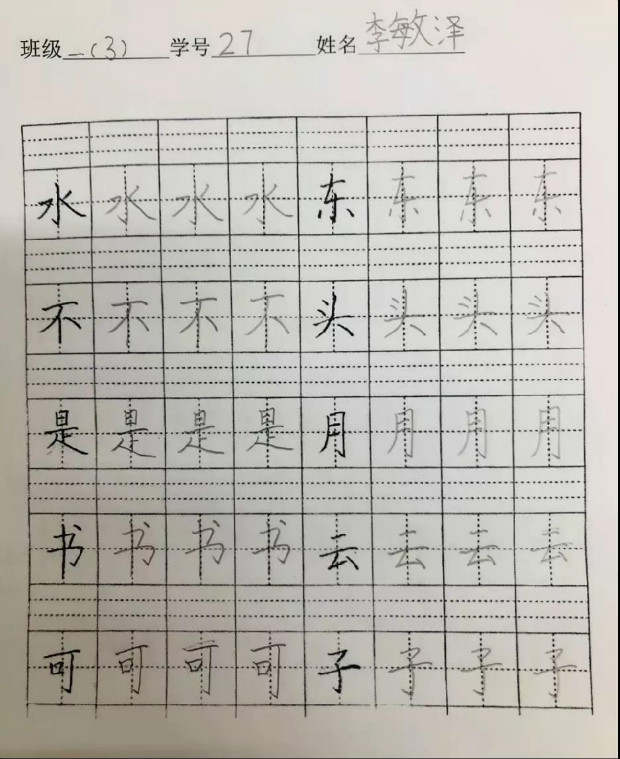 班级一(3) 学号27 姓名李敏泽
水水水水东东东东
不不不不头头头头
是是是是用用用用
书书书书云云云云
可可可可子子子子